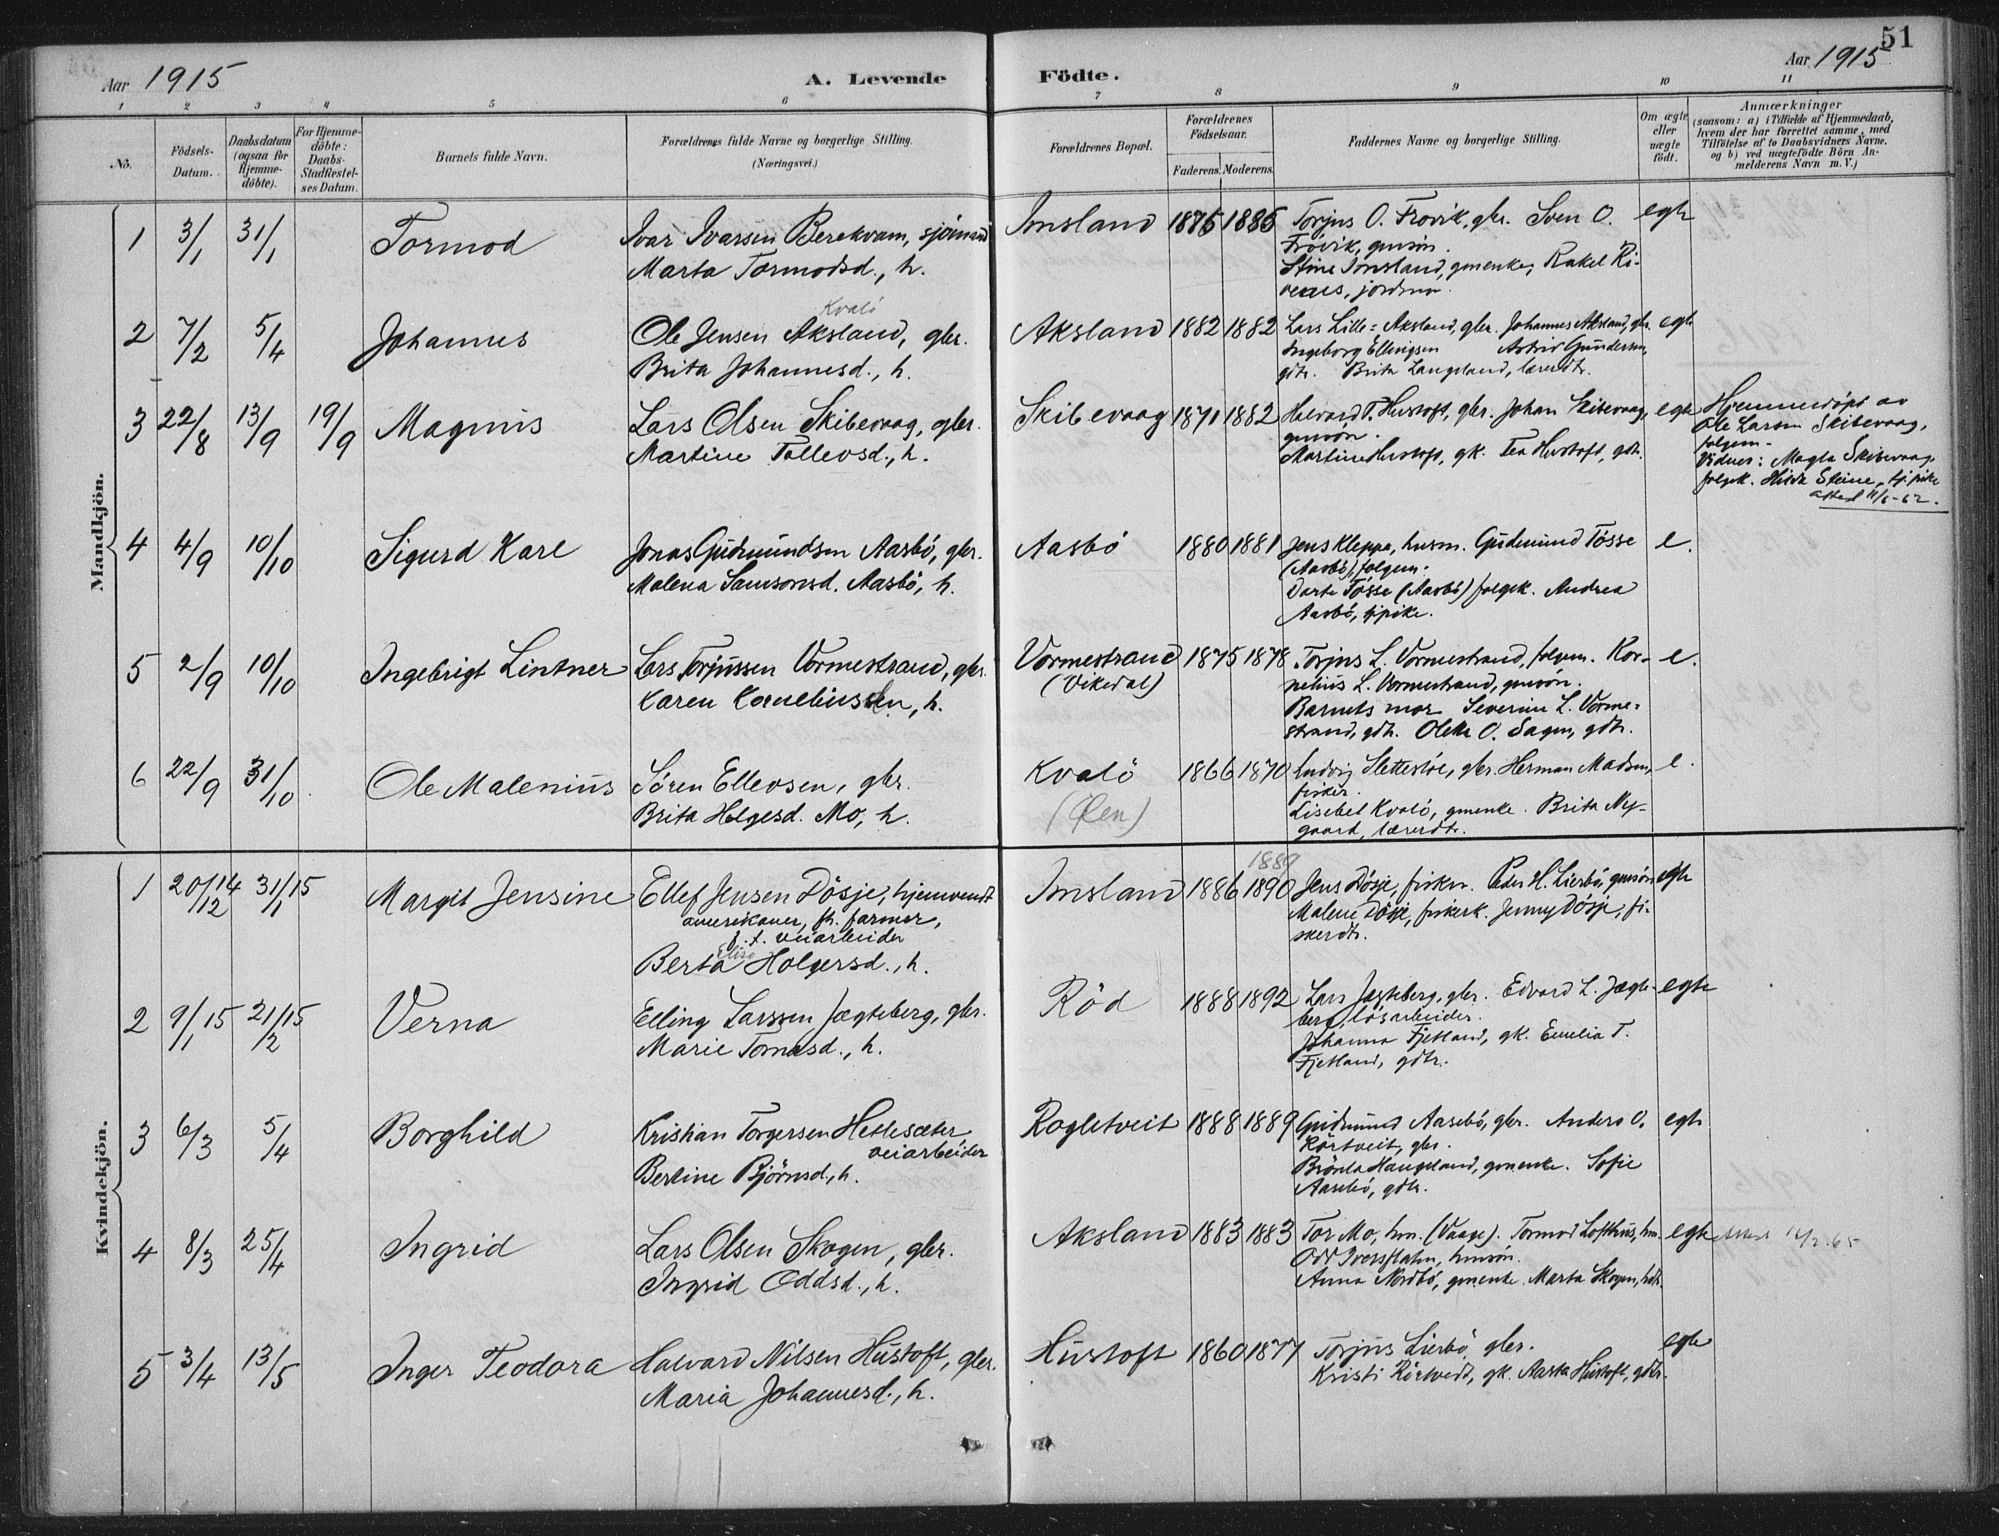 51
Aar 1915
A. Levende Födte.
Aar 1915
1 2 3 4 5 6 7 8 9 10 11
No.
Födsels-Datum.
Daabsdatum (ogsaa for Hjemme-döbte).
For Hjemme-döbte: Daabs-Stadfæstel-ses Datum.
Barnets fulde Navn.
Forældrenes fulde Navne og borgerlige Stilling.
(Næringsvei.)
Forældrenes Bopæl.
Forældrenes Födselsaar.
Faderens. Moderens.
Faddernes Navne og borgerlige Stilling.
Om ægte eller uægte födt.
Anmærkninger
(saasom: a) i Tilfælde af Hjemmedaab,
hvem der har forrettet samme, med
Tilföielse af to Daabsvidners Navne,
og b) ved uægtefödte Börn An-
melderens Navn m. V.)
Mandkjön.
1 3/1 31/1 Tormod
Ivar Ivarsen Berekvam, sjömand
Marta Tormodsd., h.
Imsland 1875 1885
Torjus O. Frövik, gbr. Sven O.
Frövik, gmsön.
Stine Imsland, gmenke, Rakel Ri-
venes, jordmor.
egte
2 7/2 5/4 Johannes
Kvalö
Ole Jensen Aksland, gbr.
Brita Johannesd., h.
Aksland 1882 1882
Lars Lille-Aksland, gbr. Johannes Aksland, gbr.
Ingeborg Ellingsen Astrid Gundersen,
gdtr. Brita Langeland, lærerdtr.
egte
3 22/8 13/9 19/9 Magnus
Lars Olsen Skibevaag, gbr.
Martine Tollevsd., h.
Skibevaag 1871 1882
Halvard T. Hustoft, gbr. Johan Skibevaag,
gmsön.
Martine Hustoft, gk. Tea Hustoft, gdtr.
egte
Hjemmedöpt av
Ole Larsen Skibevaag,
folgem.
Vidner: Magla Skibevaag,
folgek. Hilda Steine, tj.pike
attest 11/6-62.
4 4/9 10/10 Sigurd Kare
Jonas Gudmundsen Aasbö, gbr.
Malena Samsonsd. Aasbö, h.
Aasbö 1880 1881
Jens Kleppe, husm. Gudmund Tösse
(Aasbö), folgem.
Dorte Tösse (Aasbö) folgek. Andrea
Aasbö, tjpike.
e.
5 2/9 10/10 Ingebrigt Lintner
Lars Torjussen Vormestrand, gbr.
Karen Korneliussen, h.
Vormestrand
(Vikedal)
1875 1878
Torjus L. Vormestrand, folgem. Kor-
nelius L. Vormestrand, gmsön.
Barnets mor Severine L. Vorme-
strand, gdtr. Olette O. Sagen, gdtr.
e.
6 22/9 31/10 Ole Malenius
Sören Ellevsen, gbr.
Brita Helgesd. Mo, h.
Kvalö
(Ølen)
1866 1870
Ludvig Slettestöe, gbr. Herman Madsen,
fisker.
Lisebet Kvalö, gmenke. Brita Ny-
gaard, lærerdtr.
e.
Kvindekjön.
1 20/12 14 31/1 15 Margit Jensine
Ellef Jensen Dösje, hjemvendt
amerikaner, fh. farmer,
f. t. veiarbeider
Elise
Berta Holgersd., h.
Imsland 1886 1890
1889
Jens Dösje, fisker. Peder H. Lierbö, gmsön
Malene Dösje, fiskerk. Jenny Dösje, fi-
skerdtr.
egte
2 9/1 15 21/2 15 Verna
Elling Larssen Jægteberg, gbr.
Marie Tomasd., h.
Röd 1888 1892
Lars Jægteberg, gbr. Edvard L. Jægte-
berg, lösarbeider.
Johanna Fjetland, gk. Emelia T.
Fjetland, gdtr.
egte
3 6/3 5/4 Borghild
Kristian Torgersen Hettesæter
veiarbeider
Bertine Bjørnsd., h.
Rogletveit 1888 1889
Gudmund Aasebö, gbr. Anders O.
Rörtveit, gbr.
Brönla Haugeland, gmenke. Sofie
Aasebö, gdtr.
egte
4 8/3 25/4 Ingrid
Lars Olsen Skogen, gbr.
Ingrid Oddsd., h.
Aksland 1883 1883
Tor Mo, hm. (Vaage). Tormod Lofthus, hm.
Odd Iversflaten, hmsön.
Anna Nordbö, gmenke. Marta Skogen, hdtr.
egte
5 3/4 13/5 Inger Teodora
Halvard Nilsen Hustoft, gbr.
Maria Johannesd., h.
Hustoft 1860 1877
Torjus Lierbö, gbr.
Kristi Rörtvedt, gk. Aasta Hustoft, gdtr.
egte